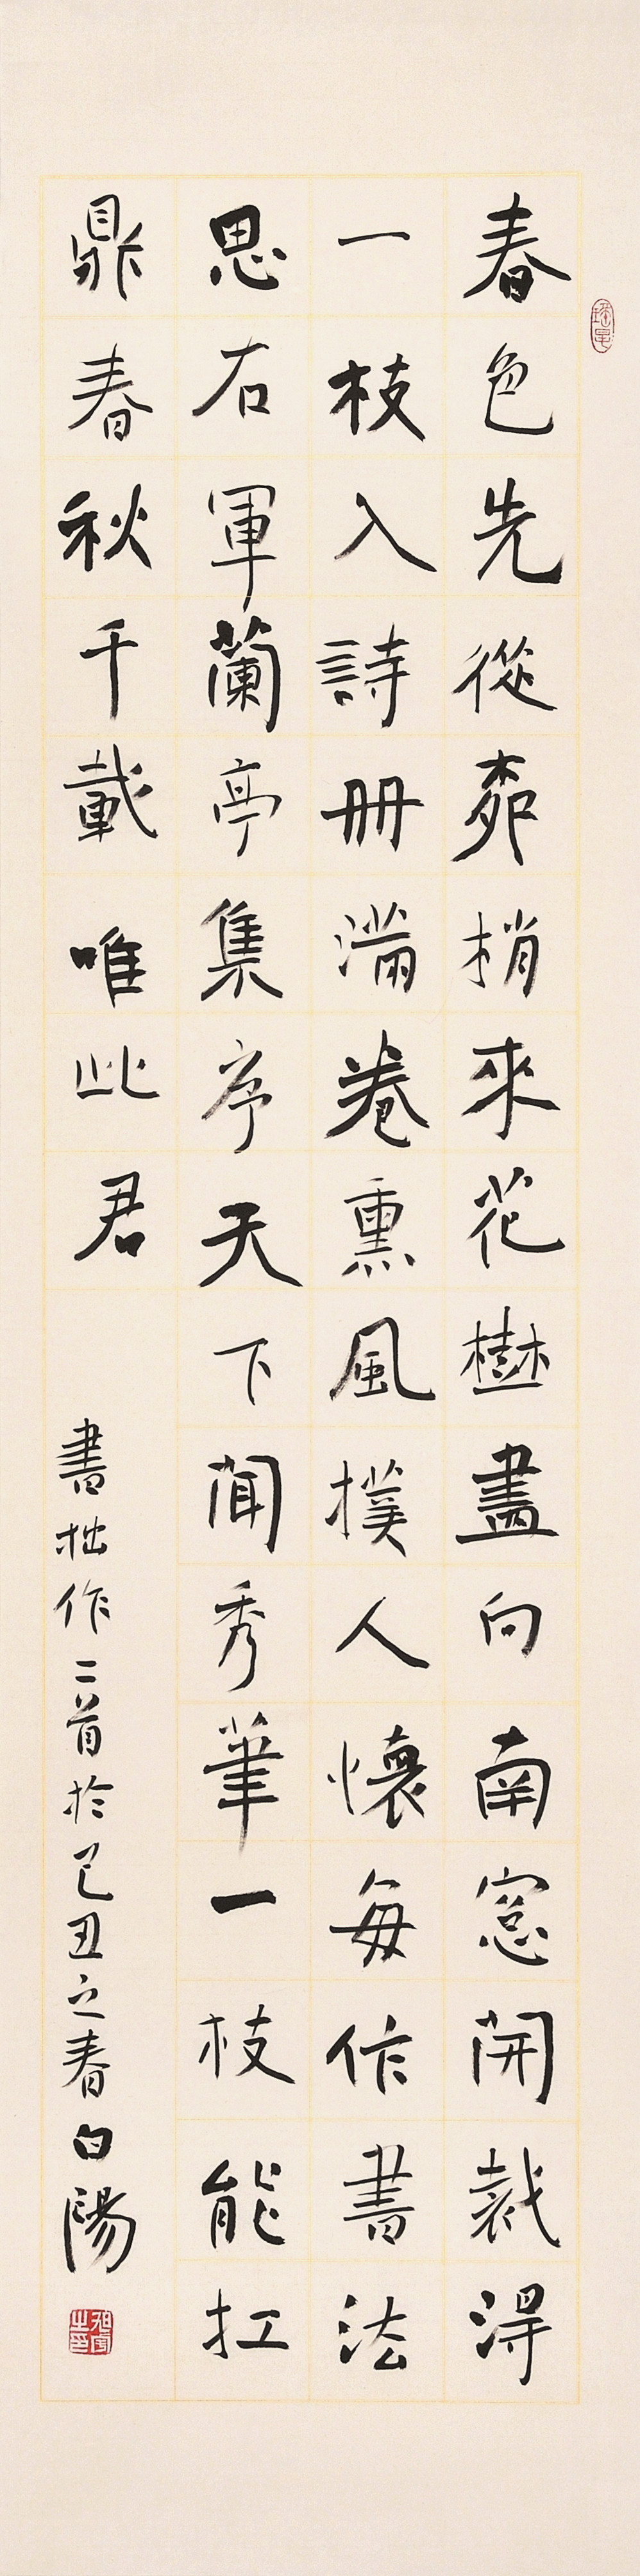 春色先從柳梢來花樹盡向南窓開裁得
一枝入詩冊滿卷熏風撲人懷每作書法
思右軍蘭亭集序天下聞秀筆一枝能扛
鼎春秋千載唯此君
書拙作二首於己丑之春白陽
旭宇之印